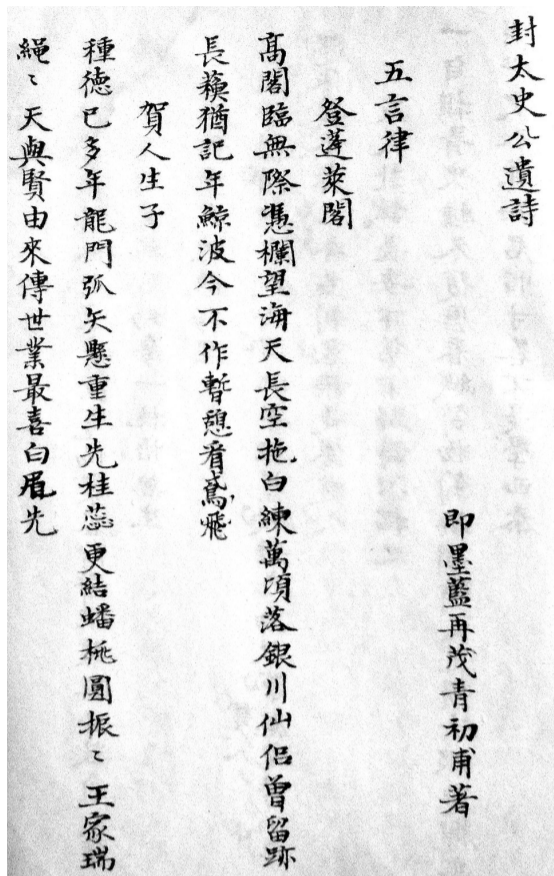 封太史公遺詩
即墨藍再茂青初甫著
五言律
登蓬萊閣
高閣臨無際憑欄望海天長空拖白練萬頃落銀川仙侶曾留跡
長藾猶記年鯨波今不作暫憩看鳶飛
賀人生子
種德已多年龍門弧矢懸重生先桂蕊更結蟠桃圓振〻王家瑞
繩〻天與賢由來傳世業最喜白眉先